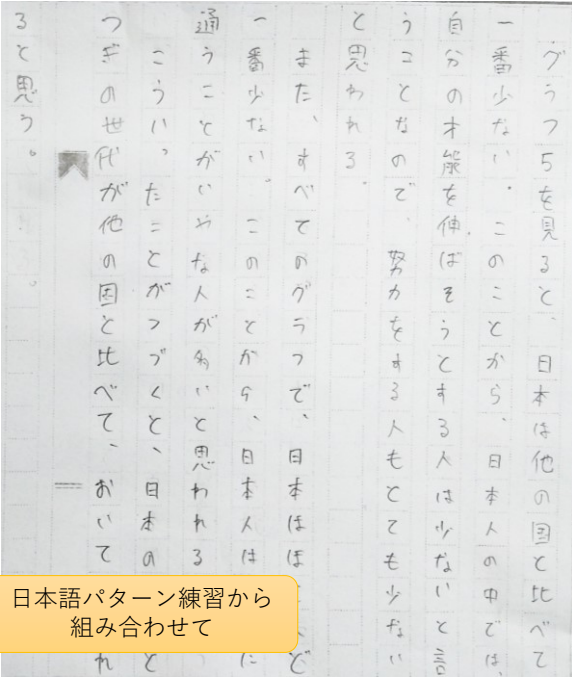 グラフ5を見ると、日本は他の国と比べて
一番少ない。このことから、日本人の中では、
自分の才能を伸ばそうとする人は少ないと言
うことなので、努力をする人もとても少ない
と思われる。
また、すべてのグラフで、日本はほ ど
一番少ない。このことから、日本人は に
通うことがいやな人が多いと思われる
こういったことがつづくと、日本の と
つぎの世代が他の国と比べて、おいて れ
ると思う。
日本語パターン練習から
組み合わせて